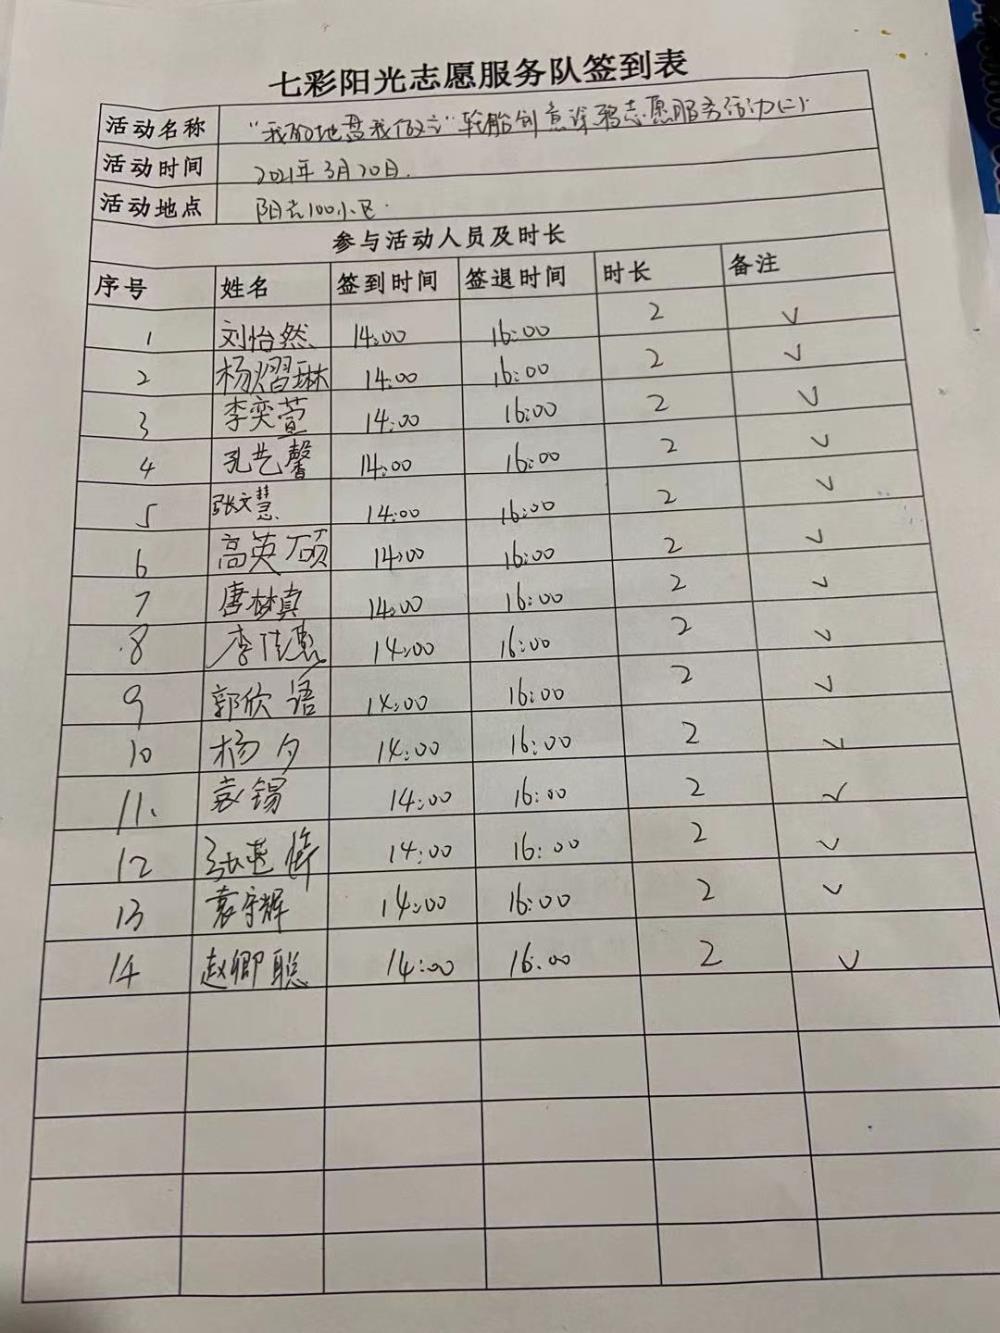 七彩阳光志愿服务队签到表
活动名称 “我的地盘我做主”轮胎创意涂鸦志愿服务活动(二)
活动时间 2021年3月20日.
活动地点 阳光100小区.
参与活动人员及时长
序号 姓名 签到时间 签退时间 时长 备注
1 刘怡然 14:00 16:00 2 √
2 杨熠琳 14:00 16:00 2 √
3 李奕萱 14:00 16:00 2 √
4 孔艺馨 14:00 16:00 2 √
5 张文慧 14:00 16:00 2 √
6 高英硕 14:00 16:00 2 √
7 唐梦真 14:00 16:00 2 √
8 李佳惠 14:00 16:00 2 √
9 郭欣语 14:00 16:00 2 √
10 杨夕 14:00 16:00 2 √
11. 袁锡 14:00 16:00 2 √
12 14:00 16:00 2 √
13 袁宇辉 14:00 16:00 2 √
14 赵卿聪 14:00 16:00 2 √